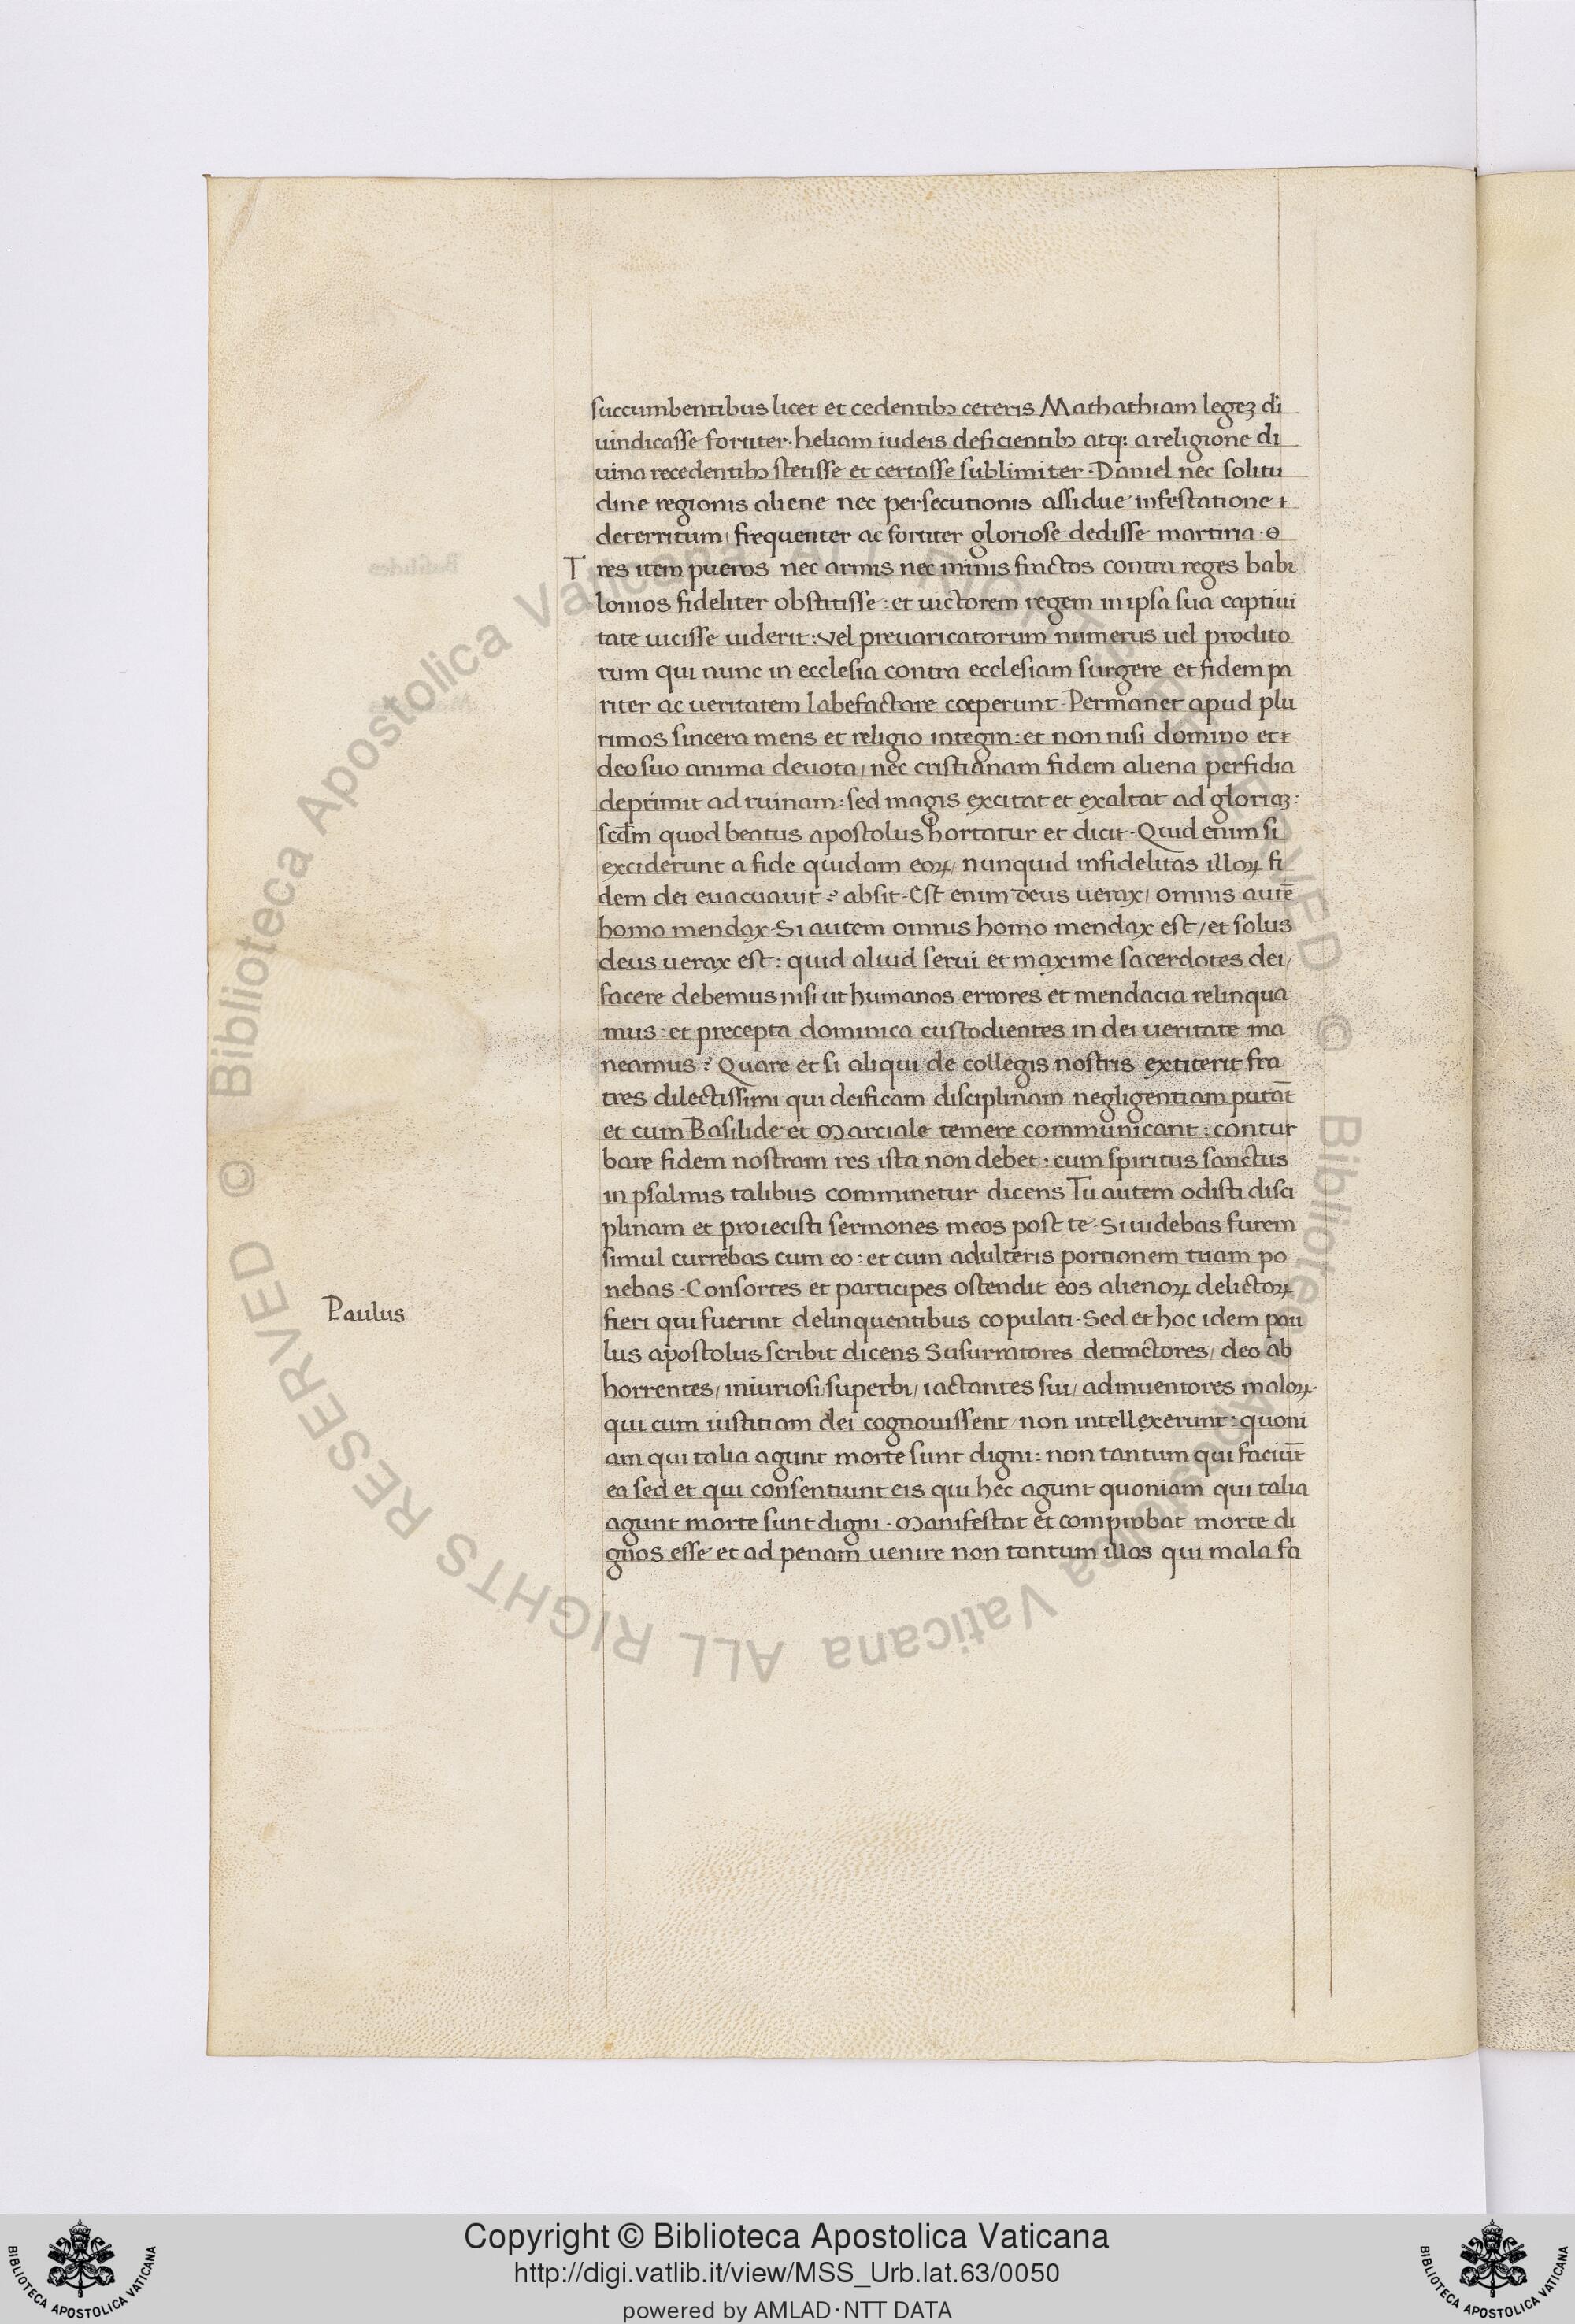 succumbentibus licet et cedentibꝫ ceteris Mathathiam legeꝫ di
uindicasse fortiter· heliam iudeis deficientibꝫ atqꝫ a religione di
uina recedentibꝫ stetisse et certasse sublimiter · Daniel nec solitu
dine regionis aliene nec persecutionis assidue infestatione
deterritum / frequenter ac fortiter gloriose dedisse martiria ·
Tres item pueros nec annis nec minis fractos contra reges babi
lonios fideliter obstitisse : et uictorem regem in ipsa sua captiui
tate uicisse uiderit : vel preuaricatorum numerus uel prodito
rum qui nunc in ecclesia contra ecclesiam surgere et fidem pa
riter ac ueritatem labefactare cœperunt · Permanet apud plu
rimos sincera mens et religio integra : et non nisi domino et
deo suo anima deuota / nec cristianam fidem aliena perfidia
deprimit ad ruinam : sed magis excitat et exaltat ad gloriaꝫ :
scd̄m quod beatus apostolus hortatur et dicit · Quid enim si
exciderunt a fide quidam eoꝝ / nunquid infidelitas illoꝝ fi
dem dei euacuauit ? absit · Est enim deus uerax / omnis autē
homo mendax · Si autem omnis homo mendax est / et solus
deus uerax est : quid aliud serui et maxime sacerdotes dei /
facere debemus nisi ut humanos errores et mendacia relinqua
mus : et precepta dominica custodientes in dei ueritate ma
neamus ? Quare et si aliqui de collegis nostris extiterit fra
tres dilectissimi qui deificam disciplinam negligentiam putāt
et cum Basilide et Marciale temere communicant : contur
bare fidem nostram res ista non debet : cum spiritus sanctus
in psalmis talibus comminetur dicens Tu autem odisti disci
plinam et proiecisti sermones meos post te · Si uidebas furem
simul currebas cum eo : et cum adulteris portionem tuam po
nebas · Consortes et participes ostendit eos alienoꝝ delictoꝝ
Paulus
fieri qui fuerint delinquentibus copulati · Sed et hoc idem pau
lus apostolus scribit dicens Susurratores detractores / deo ab
horrentes / iniuriosi superbi / iactantes sui / adinuentores maloꝝ ·
qui cum iustitiam dei cognouissent non intellexerunt : quoni
am qui talia agunt morte sunt digni : non tantum qui faciūt
ea sed et qui consentiunt eis qui hec agunt quoniam qui talia
agunt morte sunt digni · Manifestat et comprobat morte di
gnos esse et ad penam uenire non tantum illos qui mala fa
© Biblioteca Apostolica Vaticana ALL RIGHTS RESERVED © Biblioteca Apostolica Vaticana ALL RIGHTS RESERVED
Copyright © Biblioteca Apostolica Vaticana
http://digi.vatlib.it/view/MSS_Urb.lat.63/0050
powered by AMLAD·NTT DATA
BIBLIOTECA APOSTOLICA VATICANA
BIBLIOTECA APOSTOLICA VATICANA